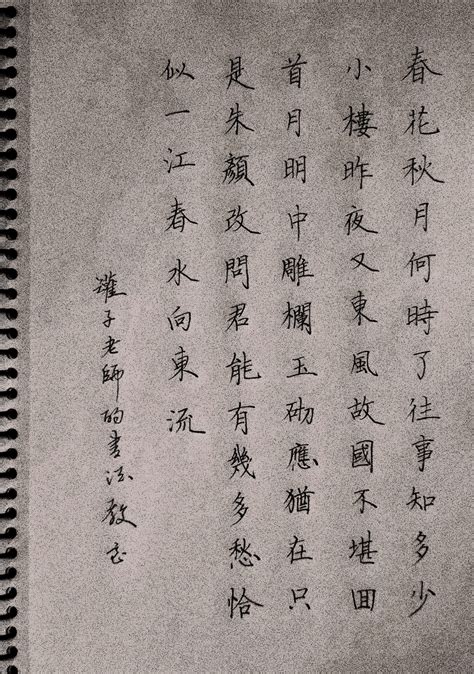 春花秋月何時了往事知多少
小樓昨夜又東風故國不堪回
首月明中雕欄玉砌應猶在只
是朱顏改問君能有幾多愁恰
似一江春水向東流
子老師的書法教室